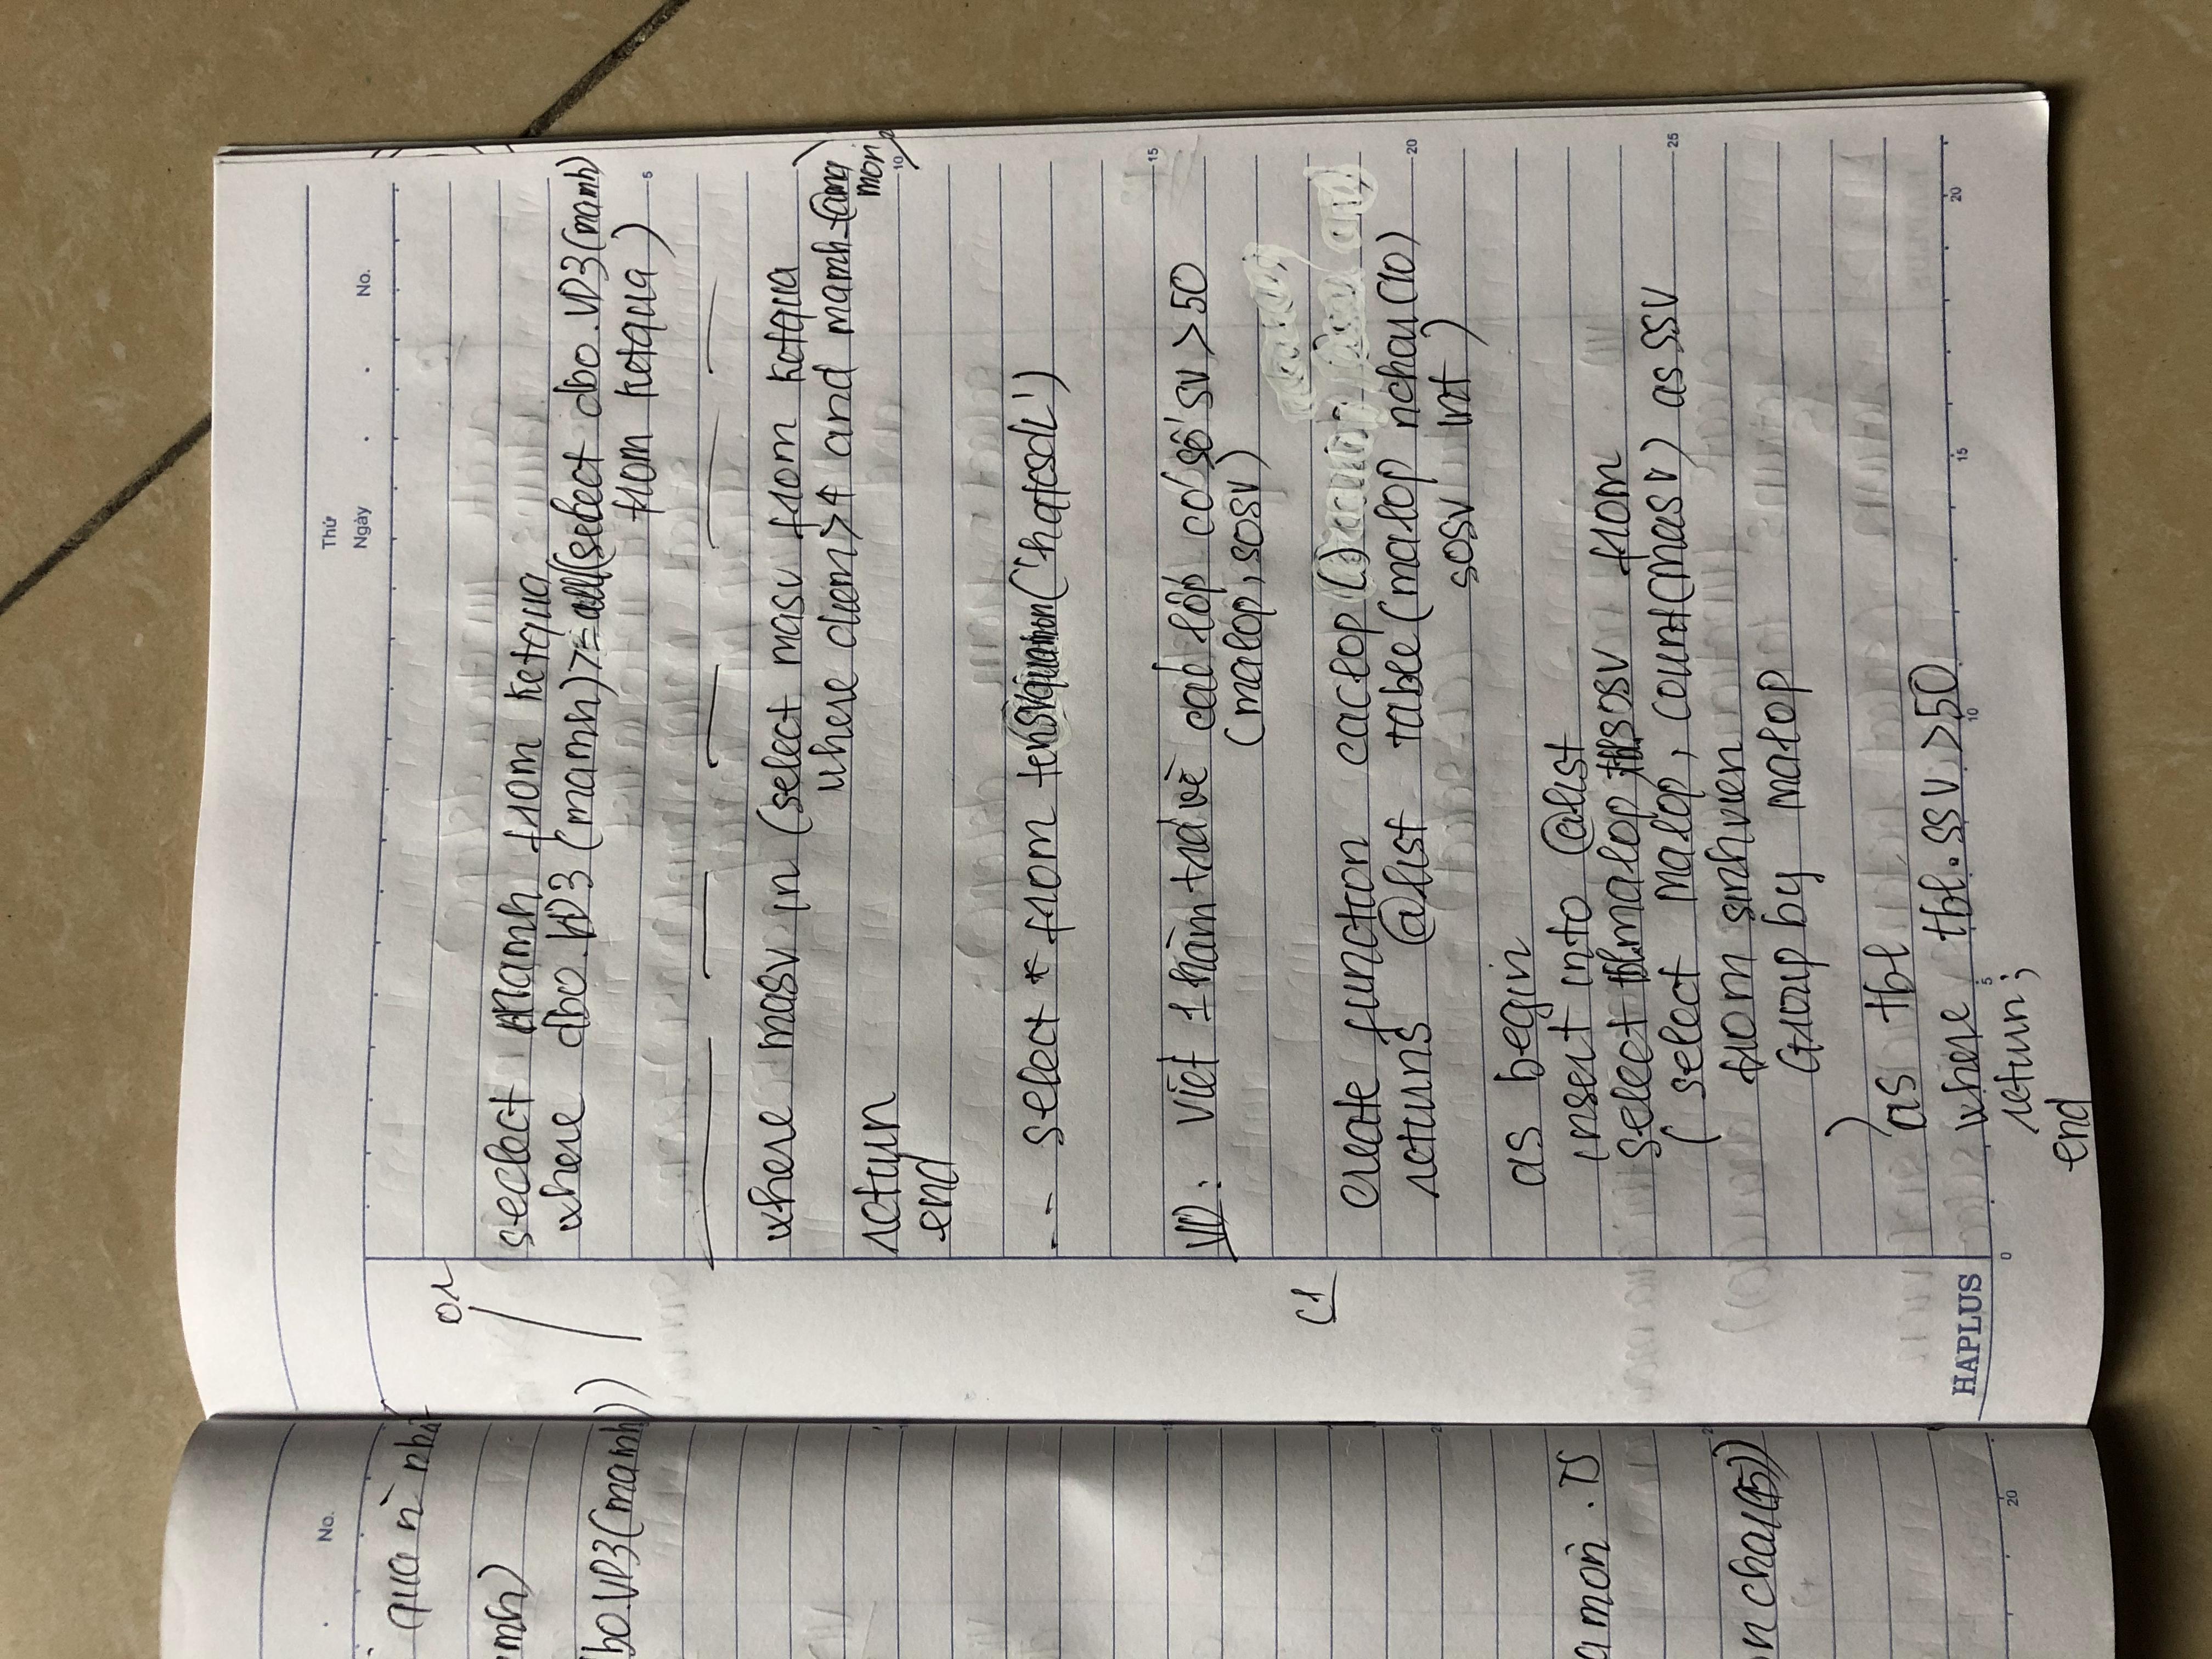 No.
qua n nhà
mh)
bo.VD3(mamh))
a mon . TS
nchar(15))
20
Thứ
Ngày . . No.
or
seclect mamh from Ketqua
where dbo.VD3 (mamh)>=all(select dbo.VD3(mamh)
from Ketqua)
5
where masv in (select masv from Ketqua
where diem>4 and mamh=@ma
mon)
return
10
end
-- select * from tenSVquamon('hqtcsdl')
15
VD: Viết 1 hàm trả về các lớp có số sv >50
(malop, sosv)
C1
create function caclop()
returns @list table(malop nchar(10)
20
sosv int)
as begin
insert into @list
select tbl.malop, tbl.sosv from
(select Malop, count(masv) as ssv
25
from sinhvien
Group by Malop
)
as tbl
where tbl.ssv >50
HAPLUS
0 5 10 15 20
return;
end